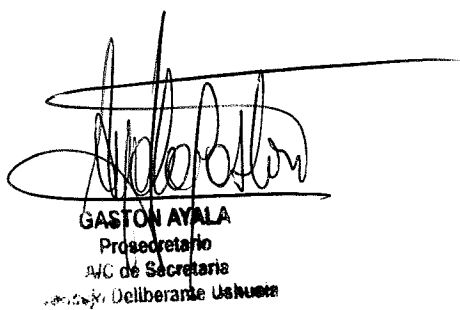 Ayala Gaston
GASTON AYALA
Prosecretario
A/C de Secretaria
Concejo Deliberante Ushuaia